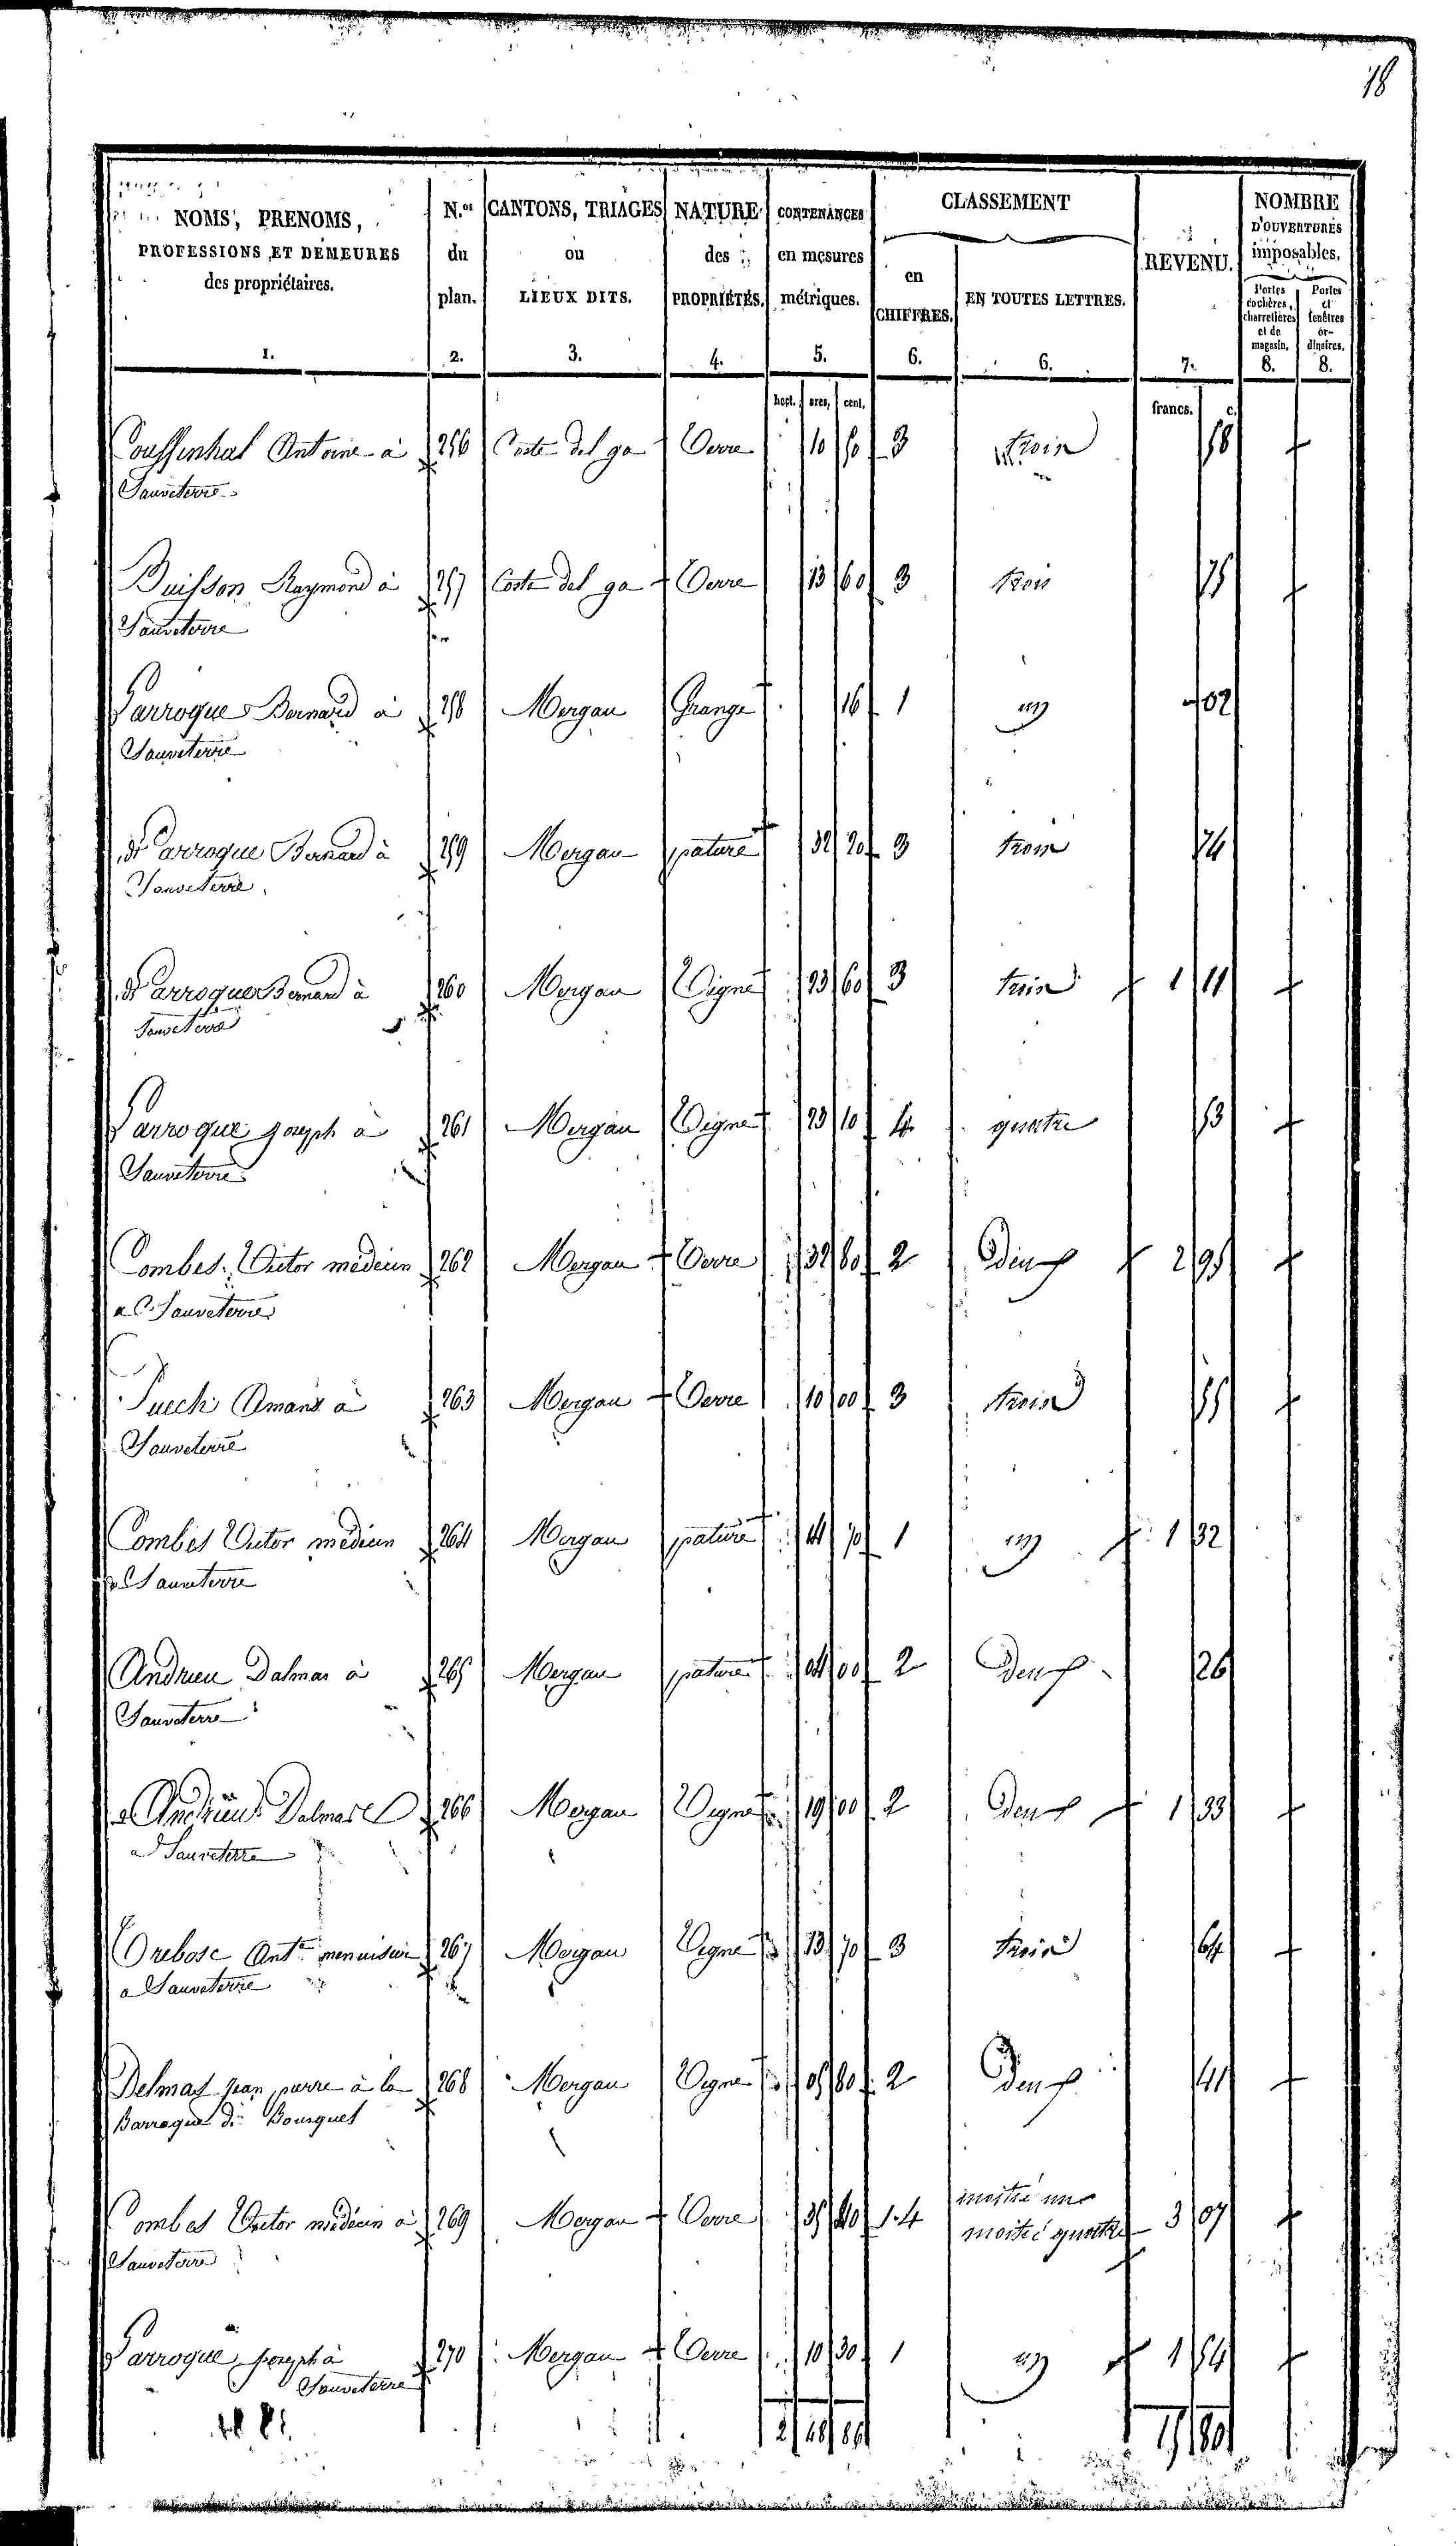 18
NOMS, PRENOMS, PROFESSIONS ET DEMEURES des propriétaires. 1.
N.os du plan. 2.
CANTONS, TRIAGES ou LIEUX DITS. 3.
NATURE des PROPRIÉTÉS. 4.
CONTENANCES en mesures métriques. 5.
CLASSEMENT
en CHIFFRES. 6.
EN TOUTES LETTRES. 6.
REVENU. 7.
NOMBRE D'OUVERTURES imposables.
Portes cochères, charretières et de magasin. 8.
Portes et fenêtres ordinaires. 8.
hect. ares, cent. francs. c.
Antoine à 256 Coste del ga Terre 10 50 3 trois 58
Sauveterre
Buisson Raymond à 257 Coste del ga Terre 13 60 3 trois 75
Sauveterre
Larroque Bernard à 258 Mergau Grange 16 1 un 02
Sauveterre
Larroque Bernard à 259 Mergau pature 32 20 3 trois 74
Sauveterre
Larroque Bernard à 260 Mergau Vigne 23 60 3 trois 1 11
Sauveterre
Larroque joseph à 261 Mergau Vigne 23 10 4 quatre 53
Sauveterre
Combes Victor médecin 262 Mergau Terre 32 80 2 Deux 2 95
a Sauveterre
Puech Amans à 263 Mergau Terre 10 00 3 trois 55
Sauveterre
Combes Victor médecin 264 Mergau pature 70 1 un 1 32
a Sauveterre
Andrieu Dalmas à 265 Mergau pature 04 00 2 Deux 26
Sauveterre
Andrieu Dalmas 266 Mergau Vigne 19 00 2 Deux 1 33
a Sauveterre
Trebosc Ant.e menuisier 267 Mergau Vigne 13 70 3 trois 64
a Sauveterre
Delmas Jean pierre à la 268 Mergau Vigne 05 80 2 Deux 41
Barraque de Bousquet
Combes Victor médecin à 269 Mergau Terre 35 40 1.4 moitié un 3 07
Sauveterre moitié quatre
Larroque joseph à 270 Mergau Terre 10 30 1 un 1 54
Sauveterre
2 48 86 15 80